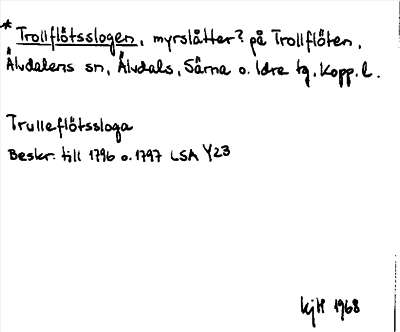 * Trollflötsslogen, myrslåtter? på Trollflöten,
Älvdalens sn, Älvdals, Särna o. Idre tg. Kopp. l.
Trulleflötssloga
Beskr. till 1796 o. 1797 LSA Y23
KjH 1968